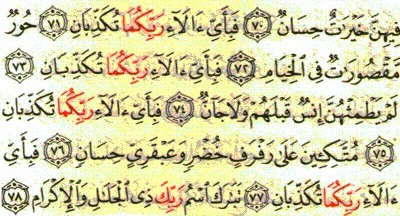 فِيهِنَّ خَيْرَٰتٌ حِسَانٌ ٧٠ فَبِأَىِّ ءَالَآءِ رَبِّكُمَا تُكَذِّبَانِ ٧١ حُورٌ
مَّقْصُورَٰتٌ فِى ٱلْخِيَامِ ٧٢ فَبِأَىِّ ءَالَآءِ رَبِّكُمَا تُكَذِّبَانِ ٧٣
لَمْ يَطْمِثْهُنَّ إِنسٌ قَبْلَهُمْ وَلَا جَآنٌّ ٧٤ فَبِأَىِّ ءَالَآءِ رَبِّكُمَا تُكَذِّبَانِ
٧٥ مُتَّكِـِٔينَ عَلَىٰ رَفْرَفٍ خُضْرٍ وَعَبْقَرِىٍّ حِسَانٍ ٧٦ فَبِأَىِّ
ءَالَآءِ رَبِّكُمَا تُكَذِّبَانِ ٧٧ تَبَٰرَكَ ٱسْمُ رَبِّكَ ذِى ٱلْجَلَٰلِ وَٱلْإِكْرَامِ ٧٨